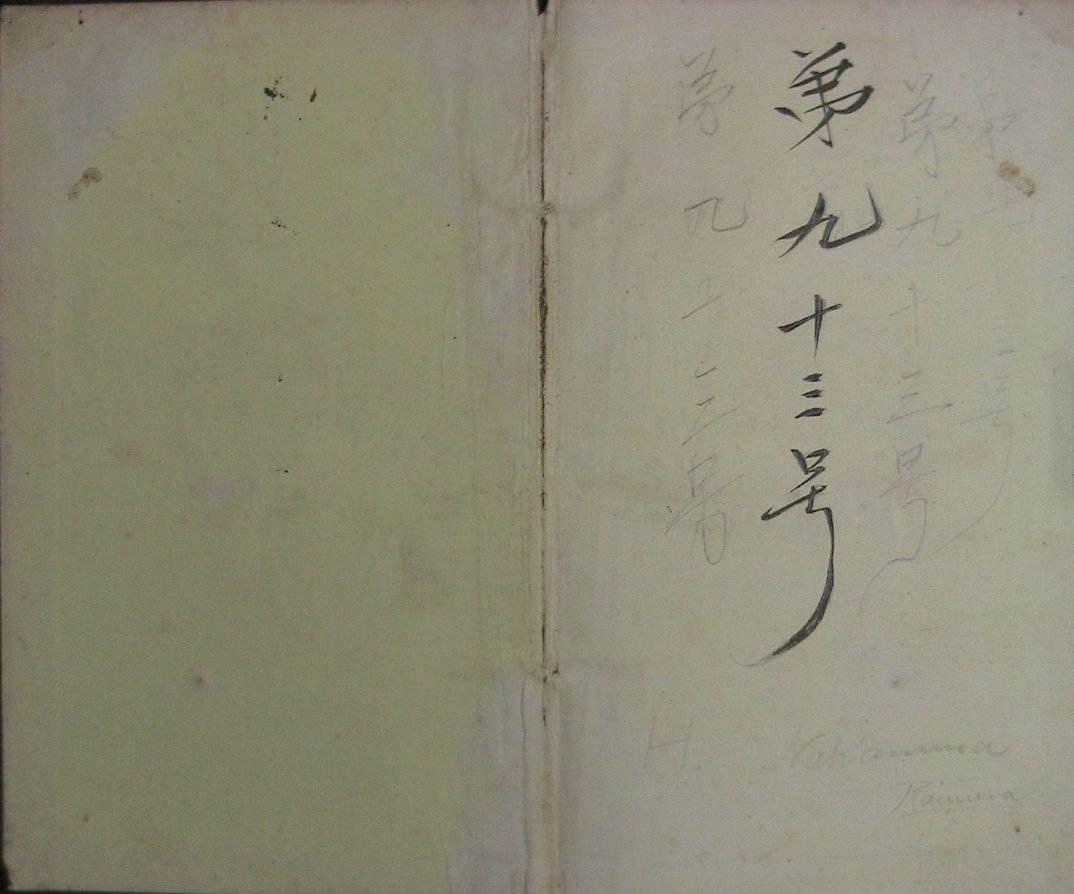 第九十三号
第九十三号
第九十三号
H. Nakamura